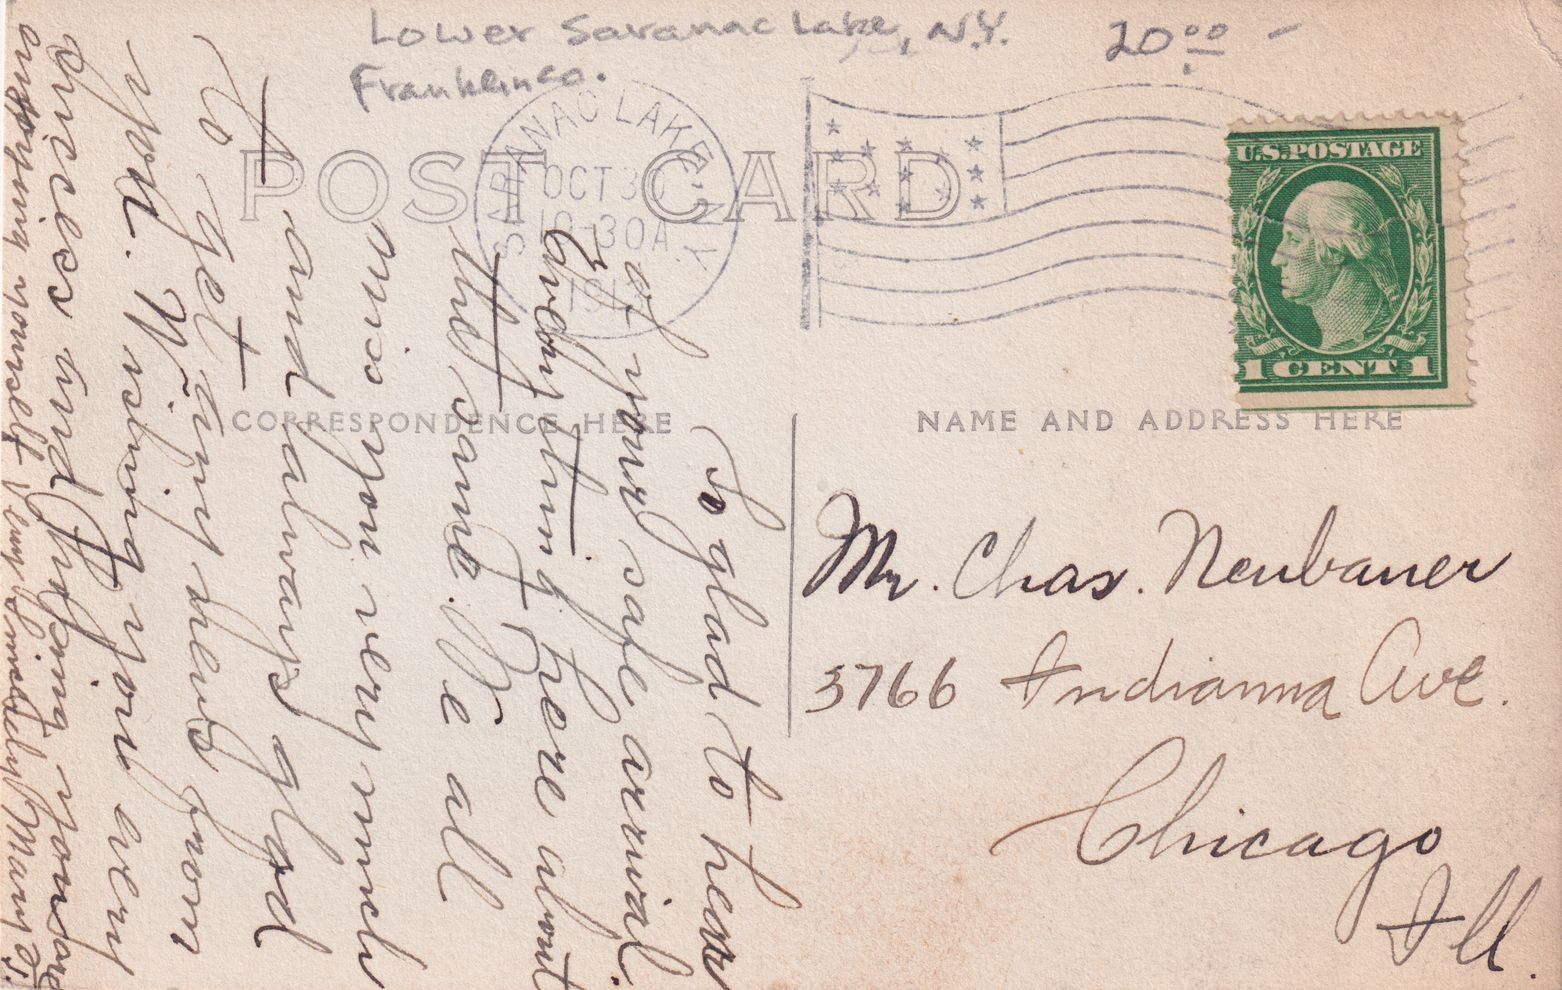 Lower Saranac Lake, N.Y.
Franklin Co.
20.00 -
SARANAC LAKE, N.Y.
OCT 30
-30A
POST CARD
U.S. POSTAGE
1 CENT 1
CORRESPONDENCE HERE
NAME AND ADDRESS HERE
So glad to hear
of your safe arrival.
Everything here about
the same. We all
miss you very much
and always glad
to get any news from
you. Wishing you every
success and hoping your are
enjoying yourself. Very sincerely Mary
Mr. Chas. Neubauer
3766 Indianna Ave.
Chicago
Ill.